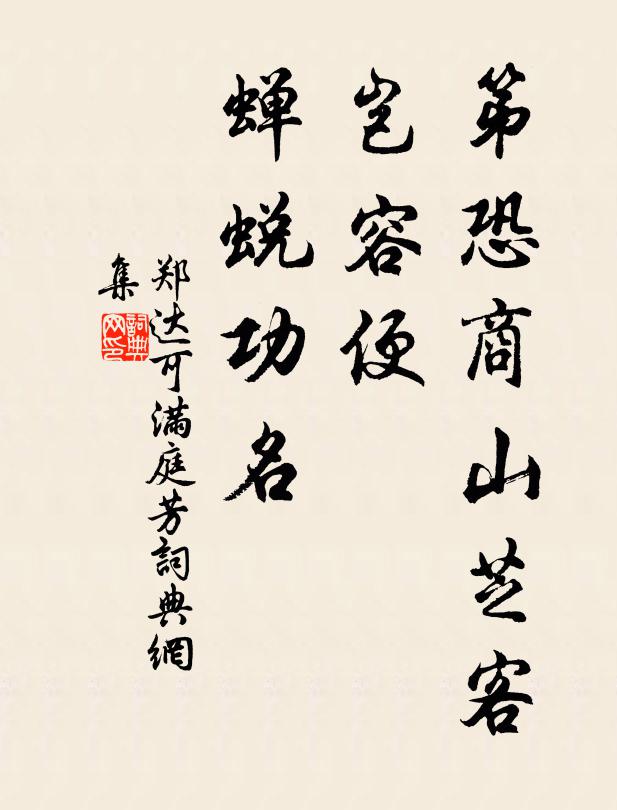 第恐商山芝客
岂容便
蝉蜕功名
郑达可满庭芳詞典網
集
詞典
网印